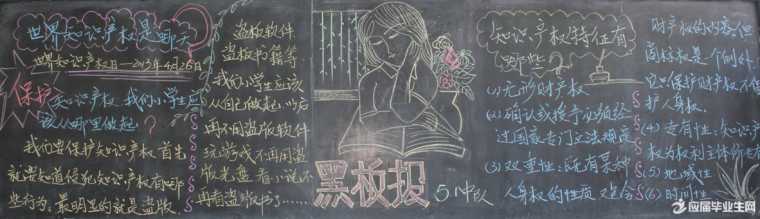 世界知识产权是哪天
世界知识产权日—2013年4月26日
保护知识产权,我们小学生应
该从哪里做起?
我们要保护知识产权首先
就要知道侵犯知识产权有哪
些行为,最明显的就是盗版,
盗版软件
盗版书籍等
我们小学生应该
从自己做起,以后
再不用盗版软件
玩游戏不再用盗
版光盘看小说不
再看盗版书了……
黑板报
5中队
知识产权特征有
哪些
(1)无形财产权
(2)确认或授予必须经
过国家专门立法规定
(3)双重性:既有某种
人身权的性质又包含
财产权的内容,但
商标权是个例外,
它只保护财产权不保
护人身权
(4)专有性:知识产
权为权利主体所专有
(5)地域性
(6)时间性
应届毕业生网